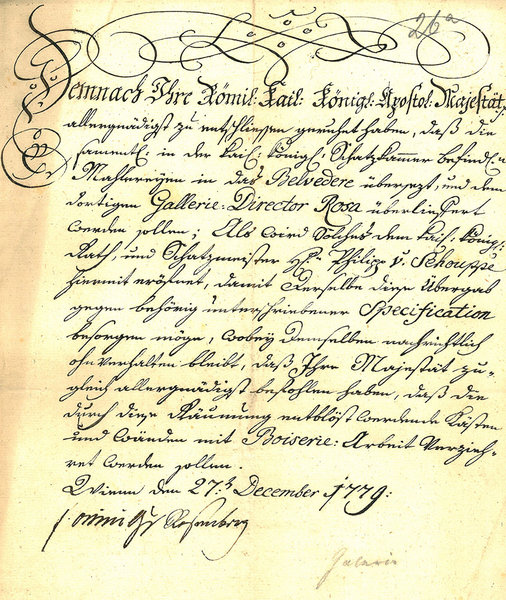 26a
Demnach Ihre Römis: Kais: Königl: Apostol: Majestät
allergnädigst zu entschliessen geruhet haben, daß die
samentl: in der kais: königl: Schatzkammer befindl:
Mahlereyen in das Belvedere übersezt, und dem
dortigen Gallerie-Director Rosa überliefert
werden sollen; Als wird Solches dem kais: königl:
Rath, und Schatzmeister H: Philipp v: Schouppe
hiermit eröfnet, damit derselbe diese Übergab
gegen behörig unterschriebener Specification
besorgen möge, wobey demselben nachrichtlich
ohnverhalten bleibt, daß Ihre Majestät zu-
gleich allergnädigst befohlen haben, daß die
durch diese Räumung entblöst werdende Kästen
und Wänden mit Boiserie-Arbeit verzieh-
ret werden sollen.
Wienn den 27:t December 1779:
Rosenberg
Galerie